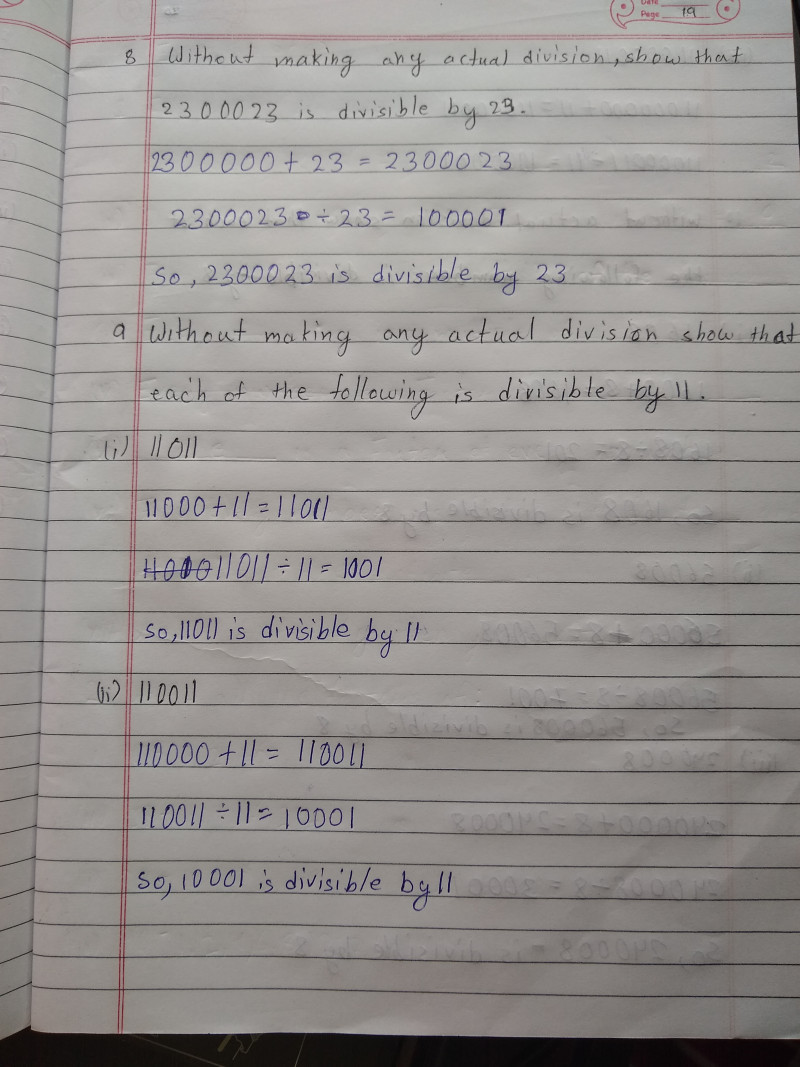 Date
Page 19
8 Without making any actual division, show that
2300023 is divisible by 23.
2300000 + 23 = 2300023
2300023 ÷ 23 = 100001
So, 2300023 is divisible by 23
9 Without making any actual division show that
each of the following is divisible by 11.
(i) 11011
11000 + 11 = 11011
11011 ÷ 11 = 1001
So, 11011 is divisible by 11
(ii) 110011
110000 + 11 = 110011
110011 ÷ 11 = 10001
So, 10001 is divisible by 11